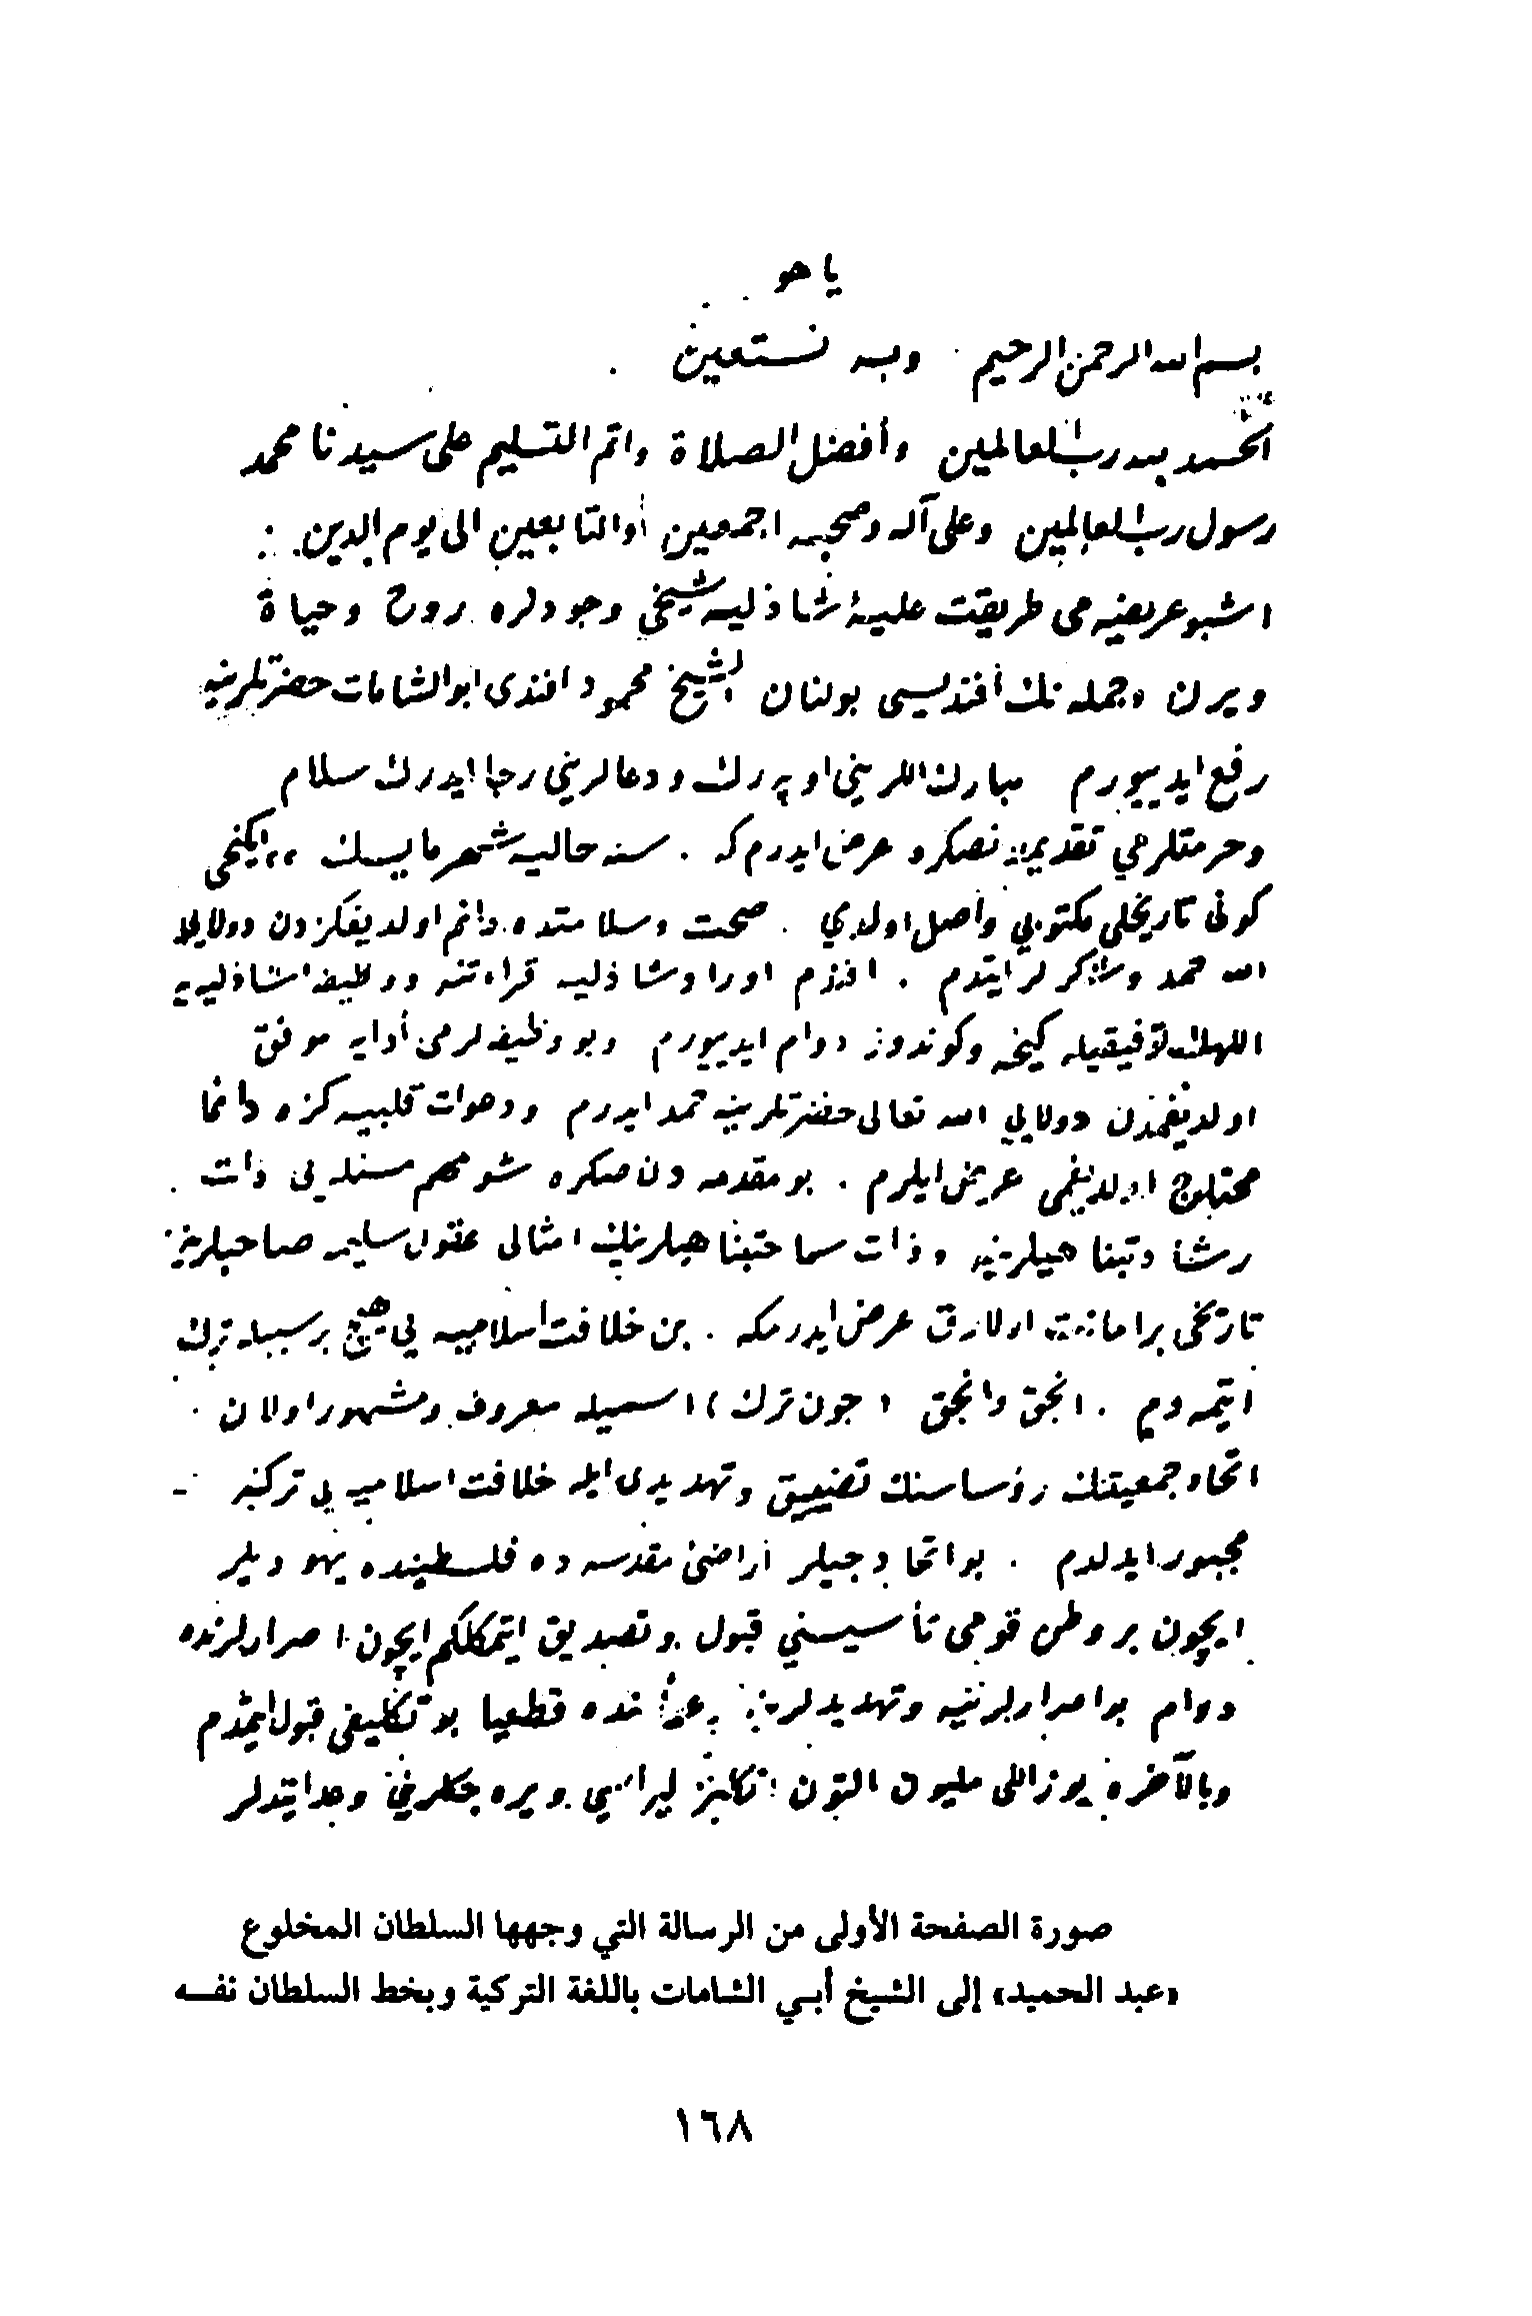 يا هو
بسم الله الرحمن الرحيم وبه نستعين
الحمد لله رب العالمين وأفضل الصلاة واتم التسليم على سيدنا محمد
رسول رب العالمين وعلى آله وصحبه اجمعين والتابعين الى يوم الدين
اشبو عريضه مى طريقت عليۀ شاذليه شيخي وجودلره روح وحياة
ويرن وجمله نك أفنديسى بولنان الشيخ محمود افندى ابو الشامات حضرتلرينه
رفع ايدييورم مبارك اللريني اوپه رك ودعالريني رجا ايدرك سلام
وحرمتلرمي تقديمدنصكره عرض ايدرم كه . سنه حاليه شهر مايسك ٢٢ ايكنجى
كونى تاريخلى مكتوبي واصل اولدي . صحت وسلامتده دائم اولديغكزدن دولايى
الله حمد وشكرلر ايتدم . افندم اوراد شاذليه قراءتنه ووظيفه شاذليه يه
اللهك توفيقيله كيجه وكوندوز دوام ايدييورم وبو وظيفه لرمى أدايه موفق
اولديغمدن دولايي الله تعالى حضرتلرينه حمد ايدرم ودعوات قلبيه كزه دائما
محتاج اولديغمى عرض ايلرم . بو مقدمه دن صكره شو مهم مسئله يى ذات
رشادتپناهيلرينه وذات سماحتپناهيلرينك امثالى عقول سليمه صاحبلرينه
تاريخى بر امانت اولارق عرض ايدرمكه . بن خلافت اسلاميه يي هيچ بر سببله ترك
ايتمه دم . انجق وانجق (جون ترك) اسميله معروف ومشهور اولان
اتحاد جمعيتنك رؤساسنك تضييق وتهديدى ايله خلافت اسلاميه يى تركه
مجبور ايدلدم . بو اتحادجيلر أراضئ مقدسه ده فلسطينده يهوديلر
ايچون بر وطن قومى تأسيسني قبول وتصديق ايتمكلكم ايچون اصرارلرنده
دوام بو اصرارلرينه وتهديدلرينه رغماً بنده قطعيا بو تكليفى قبول ايتمدم
وبالآخره يوز اللى مليون التون انكليز ليراسي ويره جكلريني وعد ايتديلر
صورة الصفحة الأولى من الرسالة التي وجهها السلطان المخلوع
«عبد الحميد» إلى الشيخ أبي الشامات باللغة التركية وبخط السلطان نفسه
١٦٨